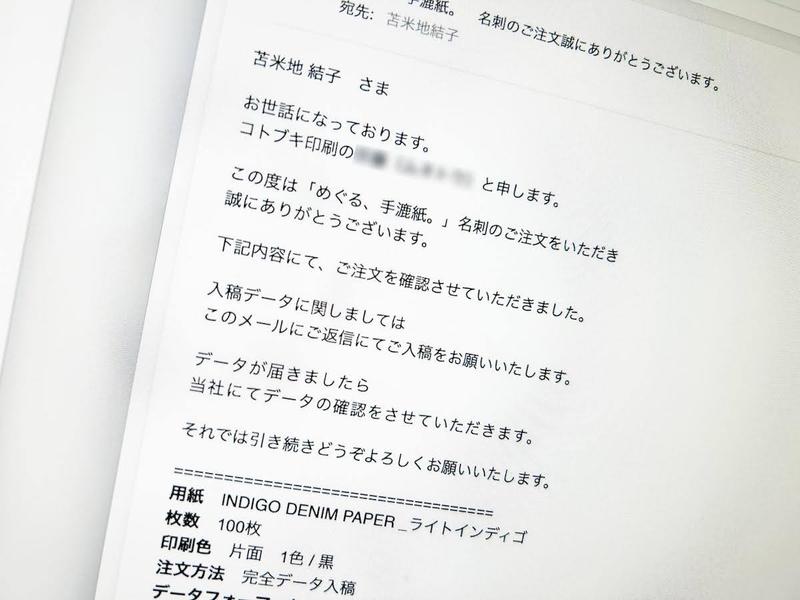 手漉紙。 名刺のご注文誠にありがとうございます。
宛先: 苫米地結子
苫米地 結子 さま
お世話になっております。
コトブキ印刷の と申します。
この度は「めぐる、手漉紙。」名刺のご注文をいただき
誠にありがとうございます。
下記内容にて、ご注文を確認させていただきました。
入稿データに関しましては
このメールにご返信にてご入稿をお願いいたします。
データが届きましたら
当社にてデータの確認をさせていただきます。
それでは引き続きどうぞよろしくお願いいたします。
===================================
用紙 INDIGO DENIM PAPER _ライトインディゴ
枚数 100枚
印刷色 片面 1色 / 黒
注文方法 完全データ入稿
データフォー